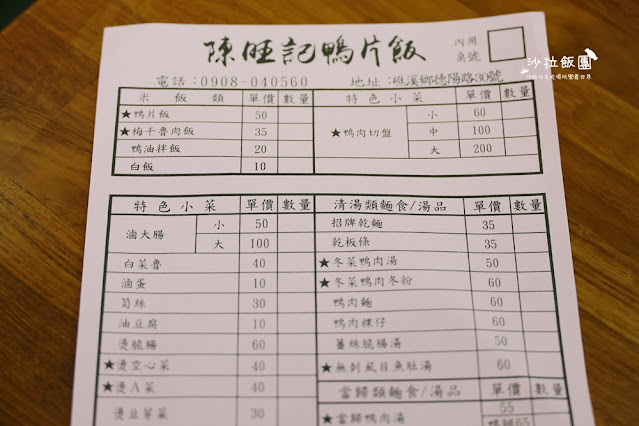 陳旺記鴨片飯
內用
桌號
沙拉飯團
電話:0908-040560 地址:礁溪鄉德陽路30號
米飯類 單價 數量
★鴨片飯 50
★梅干魯肉飯 35
鴨油拌飯 20
白飯 10
特色小菜 單價 數量
★鴨肉切盤 小 60
中 100
大 200
特色小菜 單價 數量
滷大腸 小 50
大 100
白菜魯 40
滷蛋 10
筍絲 30
油豆腐 10
燙脆腸 60
★燙空心菜 40
★燙A菜 40
燙豆芽菜 30
清湯類麵食/湯品 單價 數量
招牌乾麵 35
乾板條 35
★冬菜鴨肉湯 50
★冬菜鴨肉冬粉 60
鴨肉麵 60
鴨肉粿仔 60
薑絲脆腸湯 50
★無刺虱目魚肚湯 60
當歸類麵食/湯品 單價 數量
★當歸鴨肉湯 55
鴨腿65